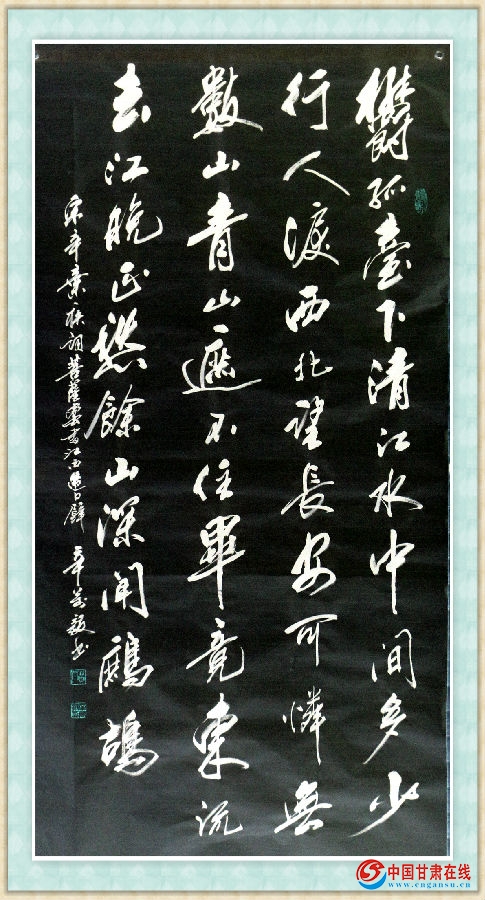 鬱孤臺下清江水中間多少
行人淚西北望長安可憐無
數山青山遮不住畢竟東流
去江晚正愁餘山深聞鷓鴣
宋辛棄疾詞菩薩蠻書江西造口壁 書
中国甘肃在线
www.cngansu.cn